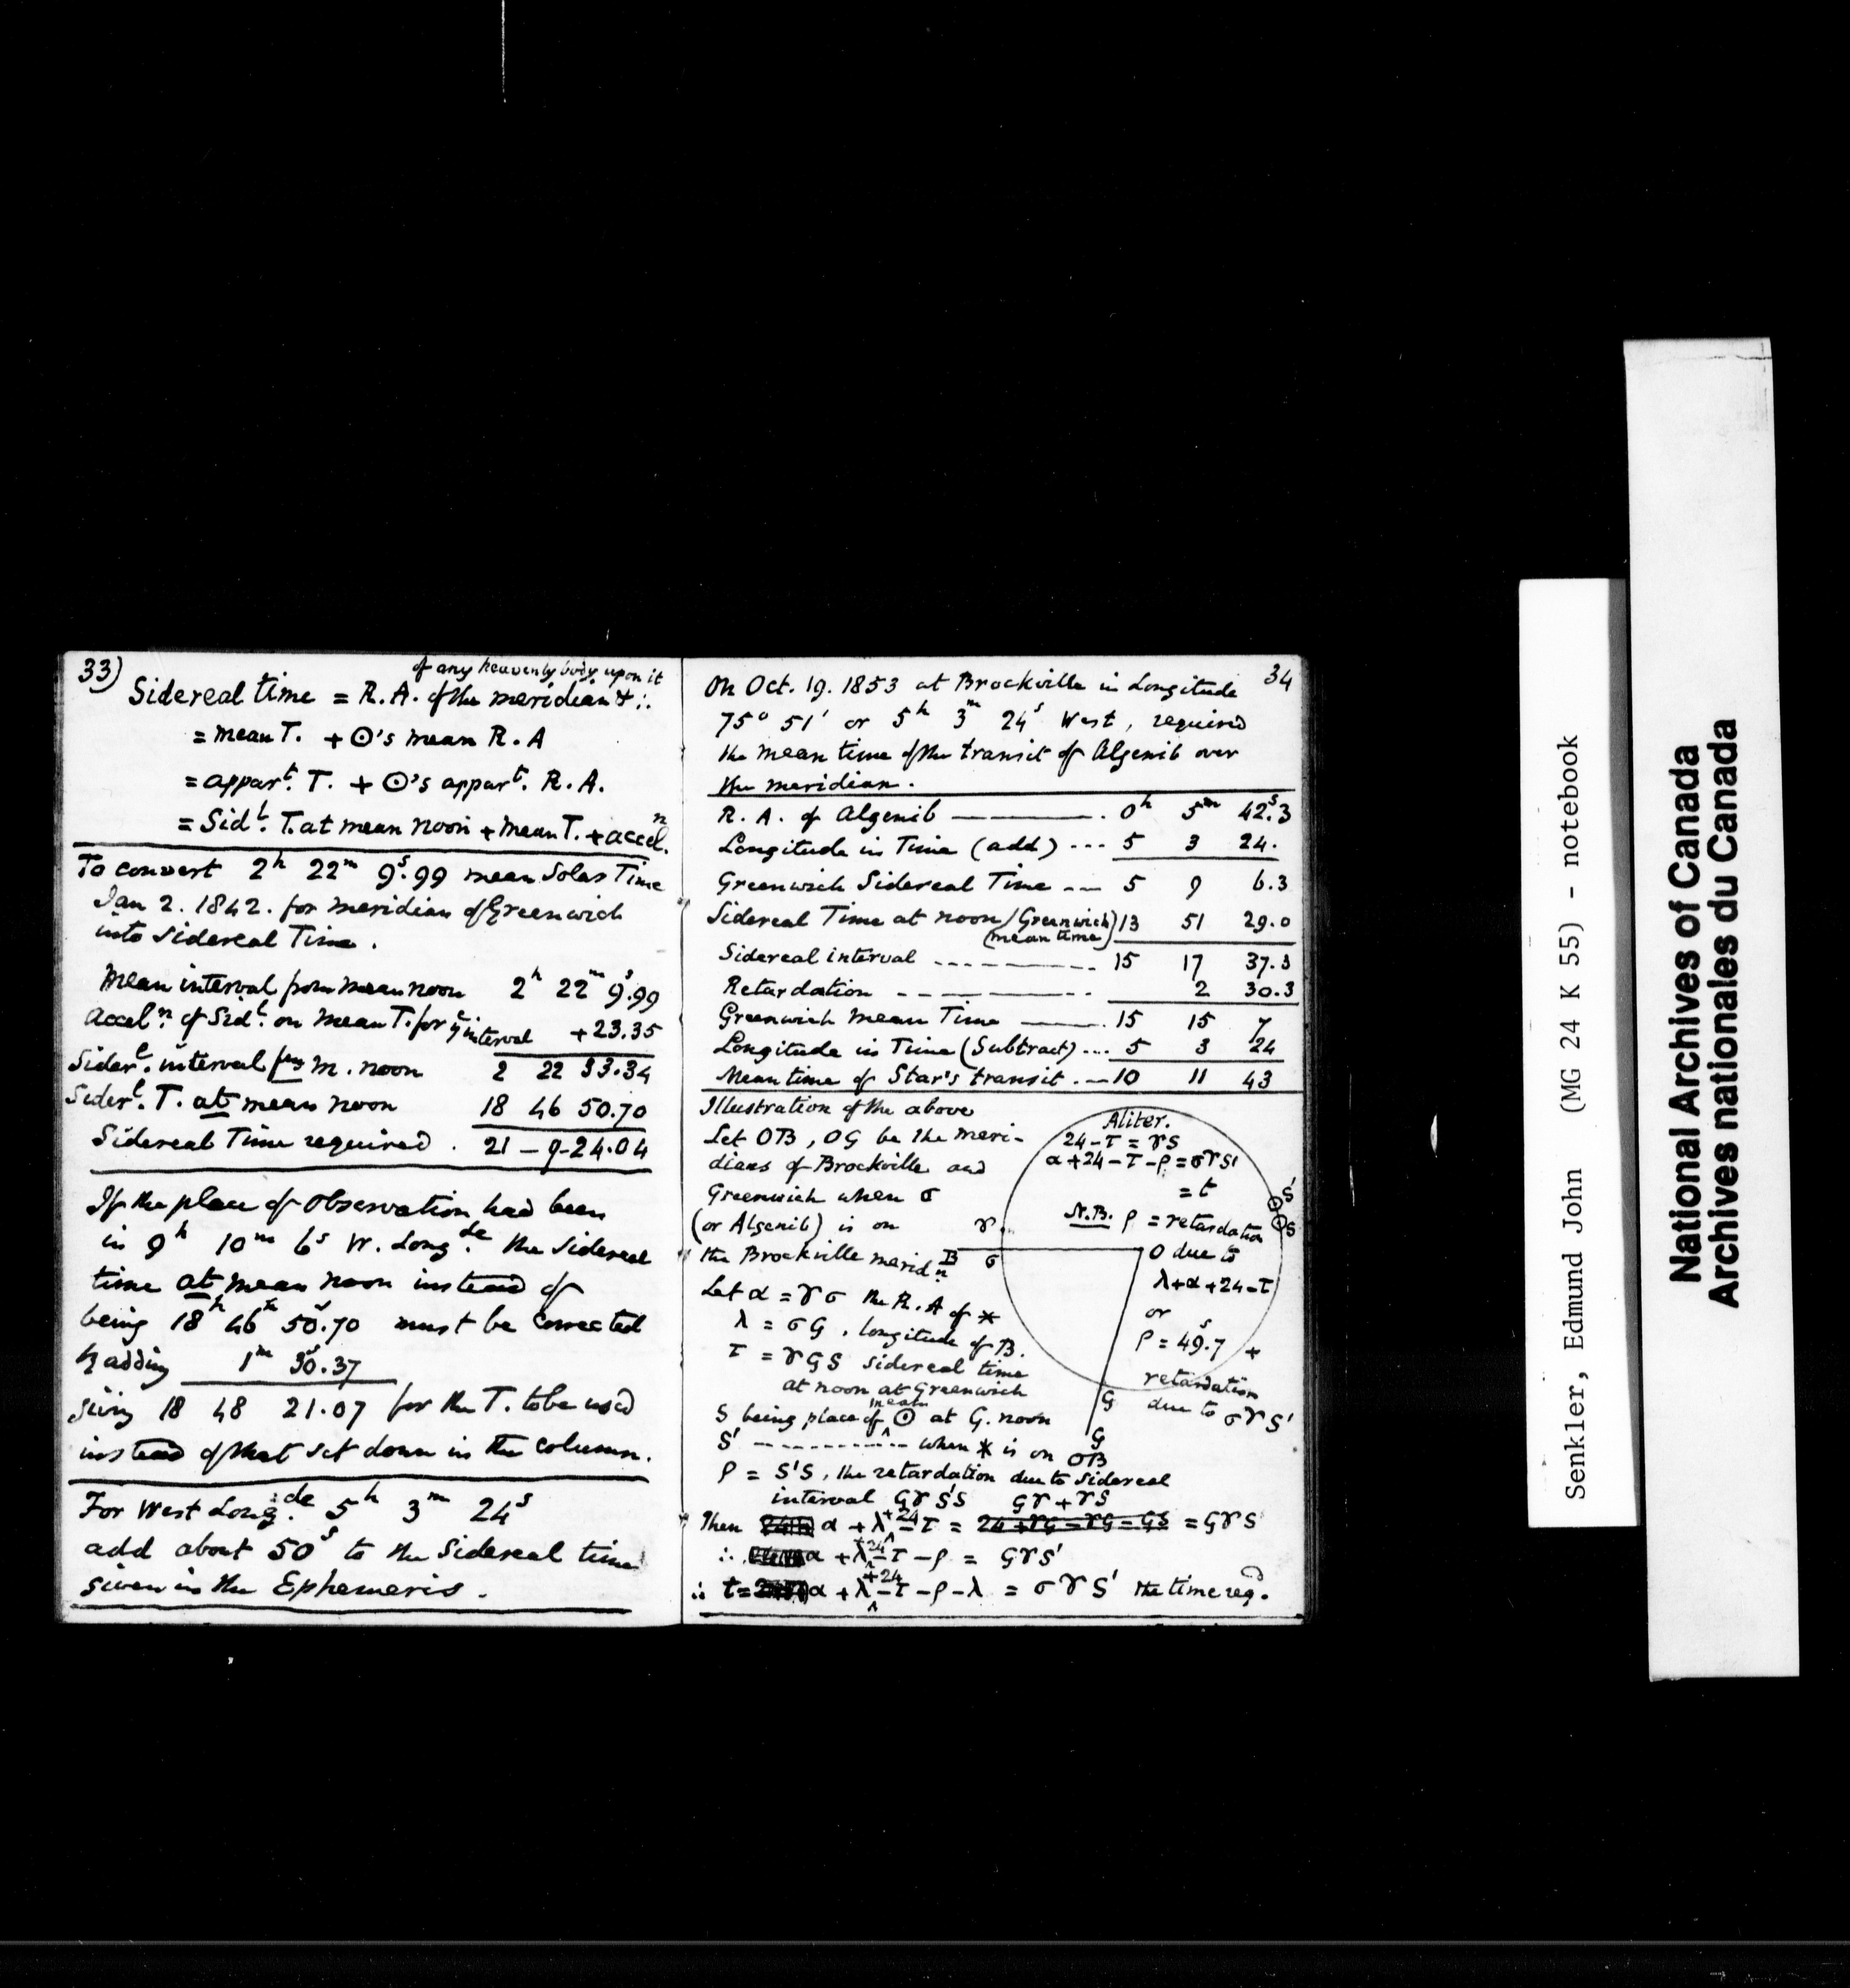 33)
of any heavenly body upon it
Sidereal time = R.A. of the meridian & ∴
= mean T. + ☉'s mean R.A
= appar^t. T. + ☉'s appar^t. R.A.
= Sid^l. T. at mean noon + mean T. + accel^n.
To convert 2^h 22^m 9^s.99 mean Solar Time
Jan 2. 1842. for meridian of Greenwich
into Sidereal Time.
Mean interval from mean noon 2^h 22^m 9^s.99
Accel^n. of Sid^l. on mean T. for y^e interval +23.35
Sider^l. interval from m. noon 2 22 33.34
Sider^l. T. at mean noon 18 46 50.70
Sidereal Time required. 21 – 9 – 24.04
If the place of Observation had been
in 9^h 10^m 6^s W. Long^de. the Sidereal
time at mean noon instead of
being 18^h 46^m 50^s.70 must be corrected
by adding 1^m 30^s.37
giving 18 48 21.07 for the T. to be used
instead of that set down in the column.
For West Long^de. 5^h 3^m 24^s
add about 50^s to the Sidereal time
given in the Ephemeris.
34
On Oct. 19. 1853 at Brockville in Longitude
75° 51' or 5^h 3^m 24^s West, required
the mean time of the transit of Algenib over
the meridian.
R. A. of Algenib ———. 0^h 5^m 42^s.3
Longitude in Time (add) --- 5 3 24.
Greenwich Sidereal Time --- 5 9 6.3
Sidereal Time at noon (Greenwich) 13 51 29.0
(mean time)
Sidereal interval ---------- 15 17 37.3
Retardation ---------- 2 30.3
Greenwich Mean Time ——— 15 15 7
Longitude in Time (Subtract) ... 5 3 24
Mean time of Star's transit .— 10 11 43
Illustration of the above
Let OB, OG be the meri-
dians of Brockville and
Greenwich when σ
(or Algenib) is on
the Brockville merid^n
Let α = ♈σ the R.A of *
λ = σG, longitude of B.
τ = ♈GS sidereal time
at noon at Greenwich
S being place of mean ☉ at G. noon
S' ---------- when * is on OB
ρ = S'S, the retardation due to sidereal
interval G♈S'S
Aliter.
24-τ = ♈S
α+24-τ-ρ = σ♈S'
= t
S'
S
N.B. ρ = retardation
♈
B σ
O due to
λ+α+24-τ
or
ρ = 49^s.7 +
retardation
due to σ♈S'
G
G
G♈+♈S
Then α + λ +24 - τ = 24+♈G-♈G-GS = G♈S
∴ α + λ +24 - τ - ρ = G♈S'
∴ t = α + λ +24 - τ - ρ - λ = σ♈S' the time req^d.
Senkler, Edmund John (MG 24 K 55) - notebook
National Archives of Canada
Archives nationales du Canada